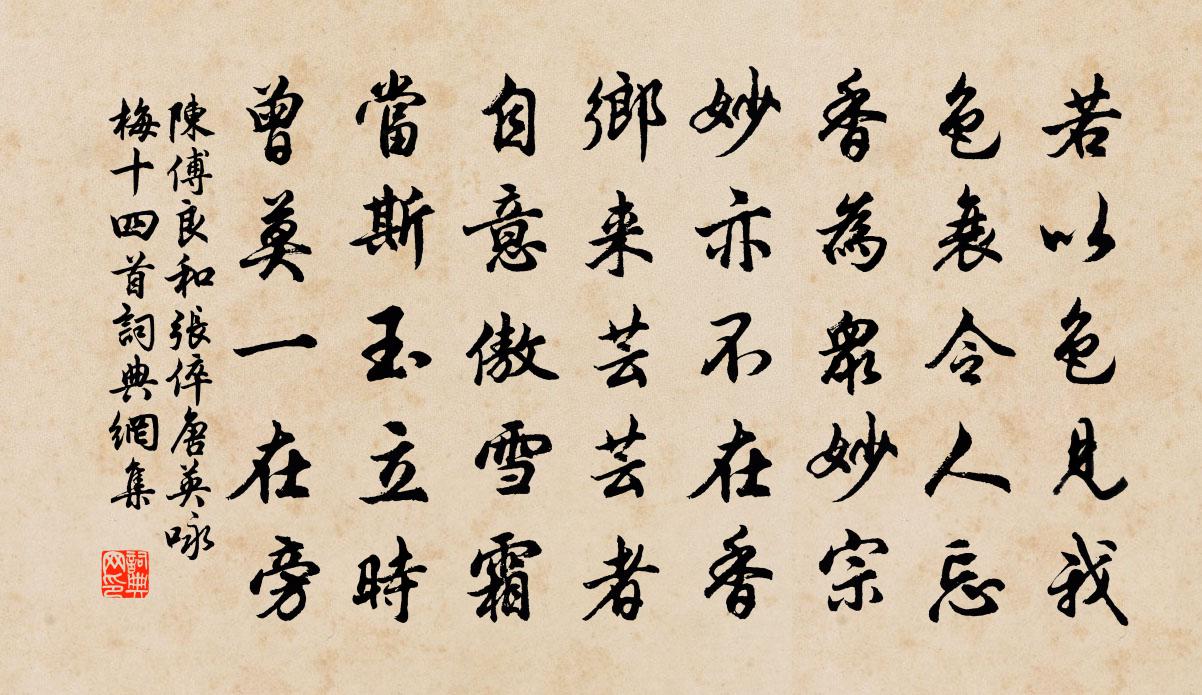 若以色見我
色衰令人忘
香為眾妙宗
妙亦不在香
鄉来芸芸者
自意傲雪霜
當斯玉立時
曾莫一在旁
陳傅良和張倅唐英咏
梅十四首詞典網集
詞典
网印